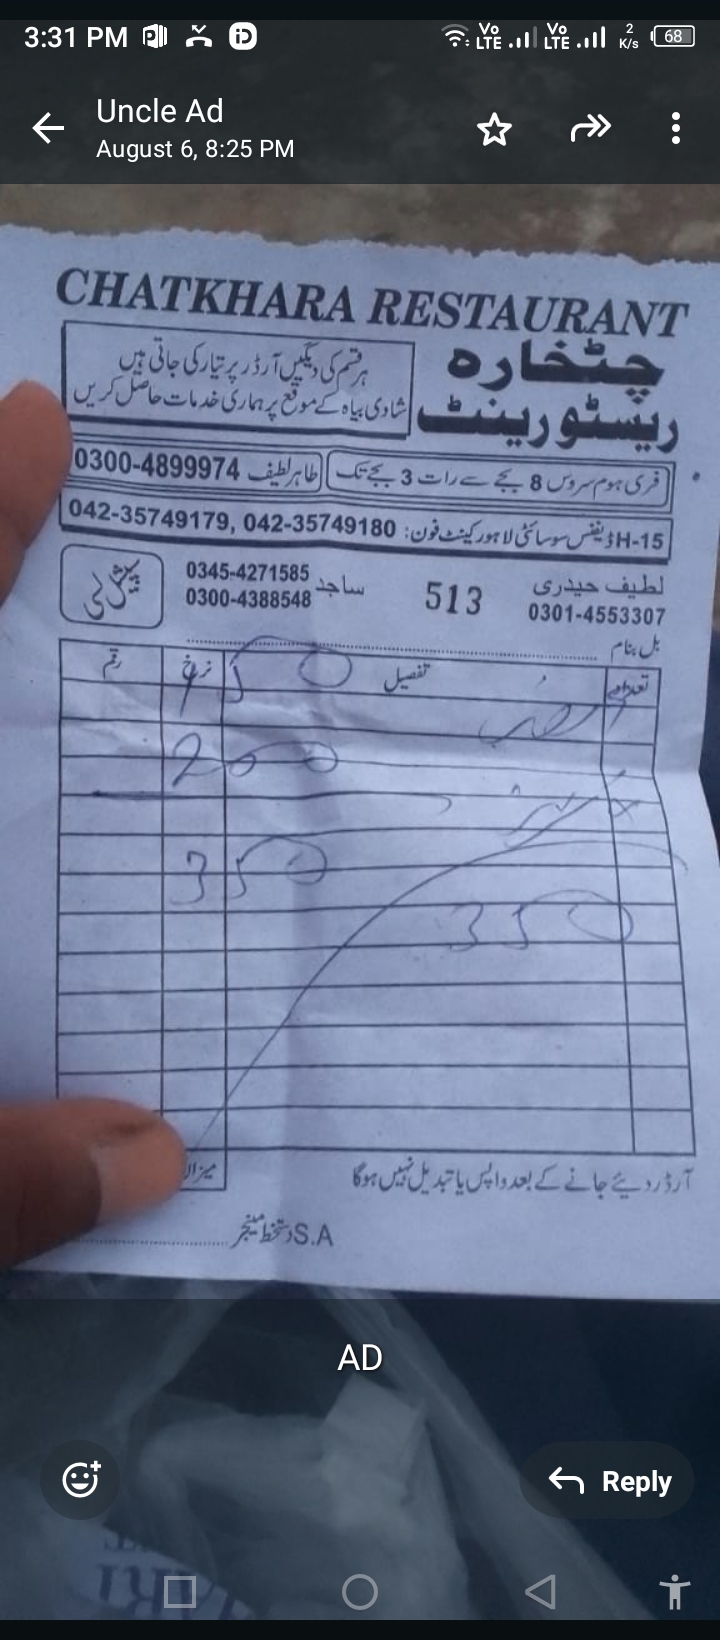 3:31 PM Vo LTE Vo LTE 2 K/s 68
Uncle Ad
August 6, 8:25 PM
CHATKHARA RESTAURANT
چٹخارہ
ریسٹورینٹ
ہر قسم کی دیگیں آرڈر پر تیار کی جاتی ہیں
شادی بیاہ کے موقع پر ہماری خدمات حاصل کریں
فری ہوم سروس 8 بجے سے رات 3 بجے تک
طاہر لطیف 0300-4899974
H-15 ڈیفنس سوسائٹی لاہور کینٹ فون: 042-35749179, 042-35749180
لطیف حیدری
0301-4553307
513
ساجد
0345-4271585
0300-4388548
بل بنام
تعداد تفصیل نرخ رقم
150
200
350
350
آرڈر دیئے جانے کے بعد واپس یا تبدیل نہیں ہوگا
S.A دستخط مینجر
AD
Reply